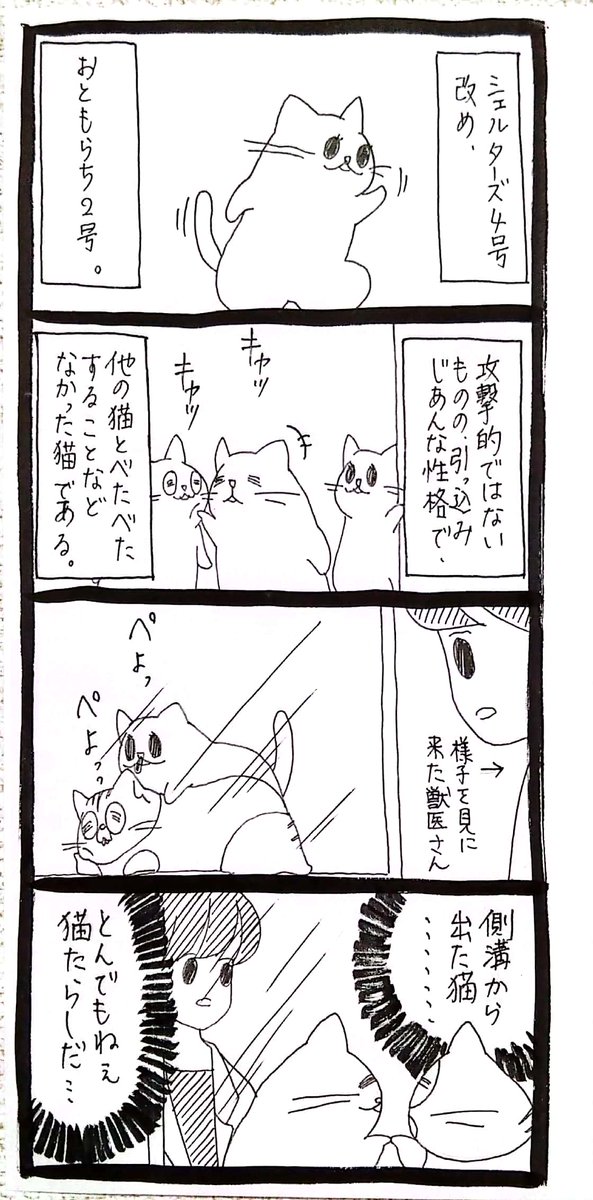 シェルターズ4号
改め、
おともらち2号。
攻撃的ではない
ものの、引っ込み
じあんな性格で、
キャッ
キャッ
他の猫とべたべた
することなど
なかった猫である。
様子を見に
来た獣医さん
→
ぺょっ
ぺょっっ
側溝から
出た猫
・・・・・・・
とんでもねぇ
猫たらしだ…